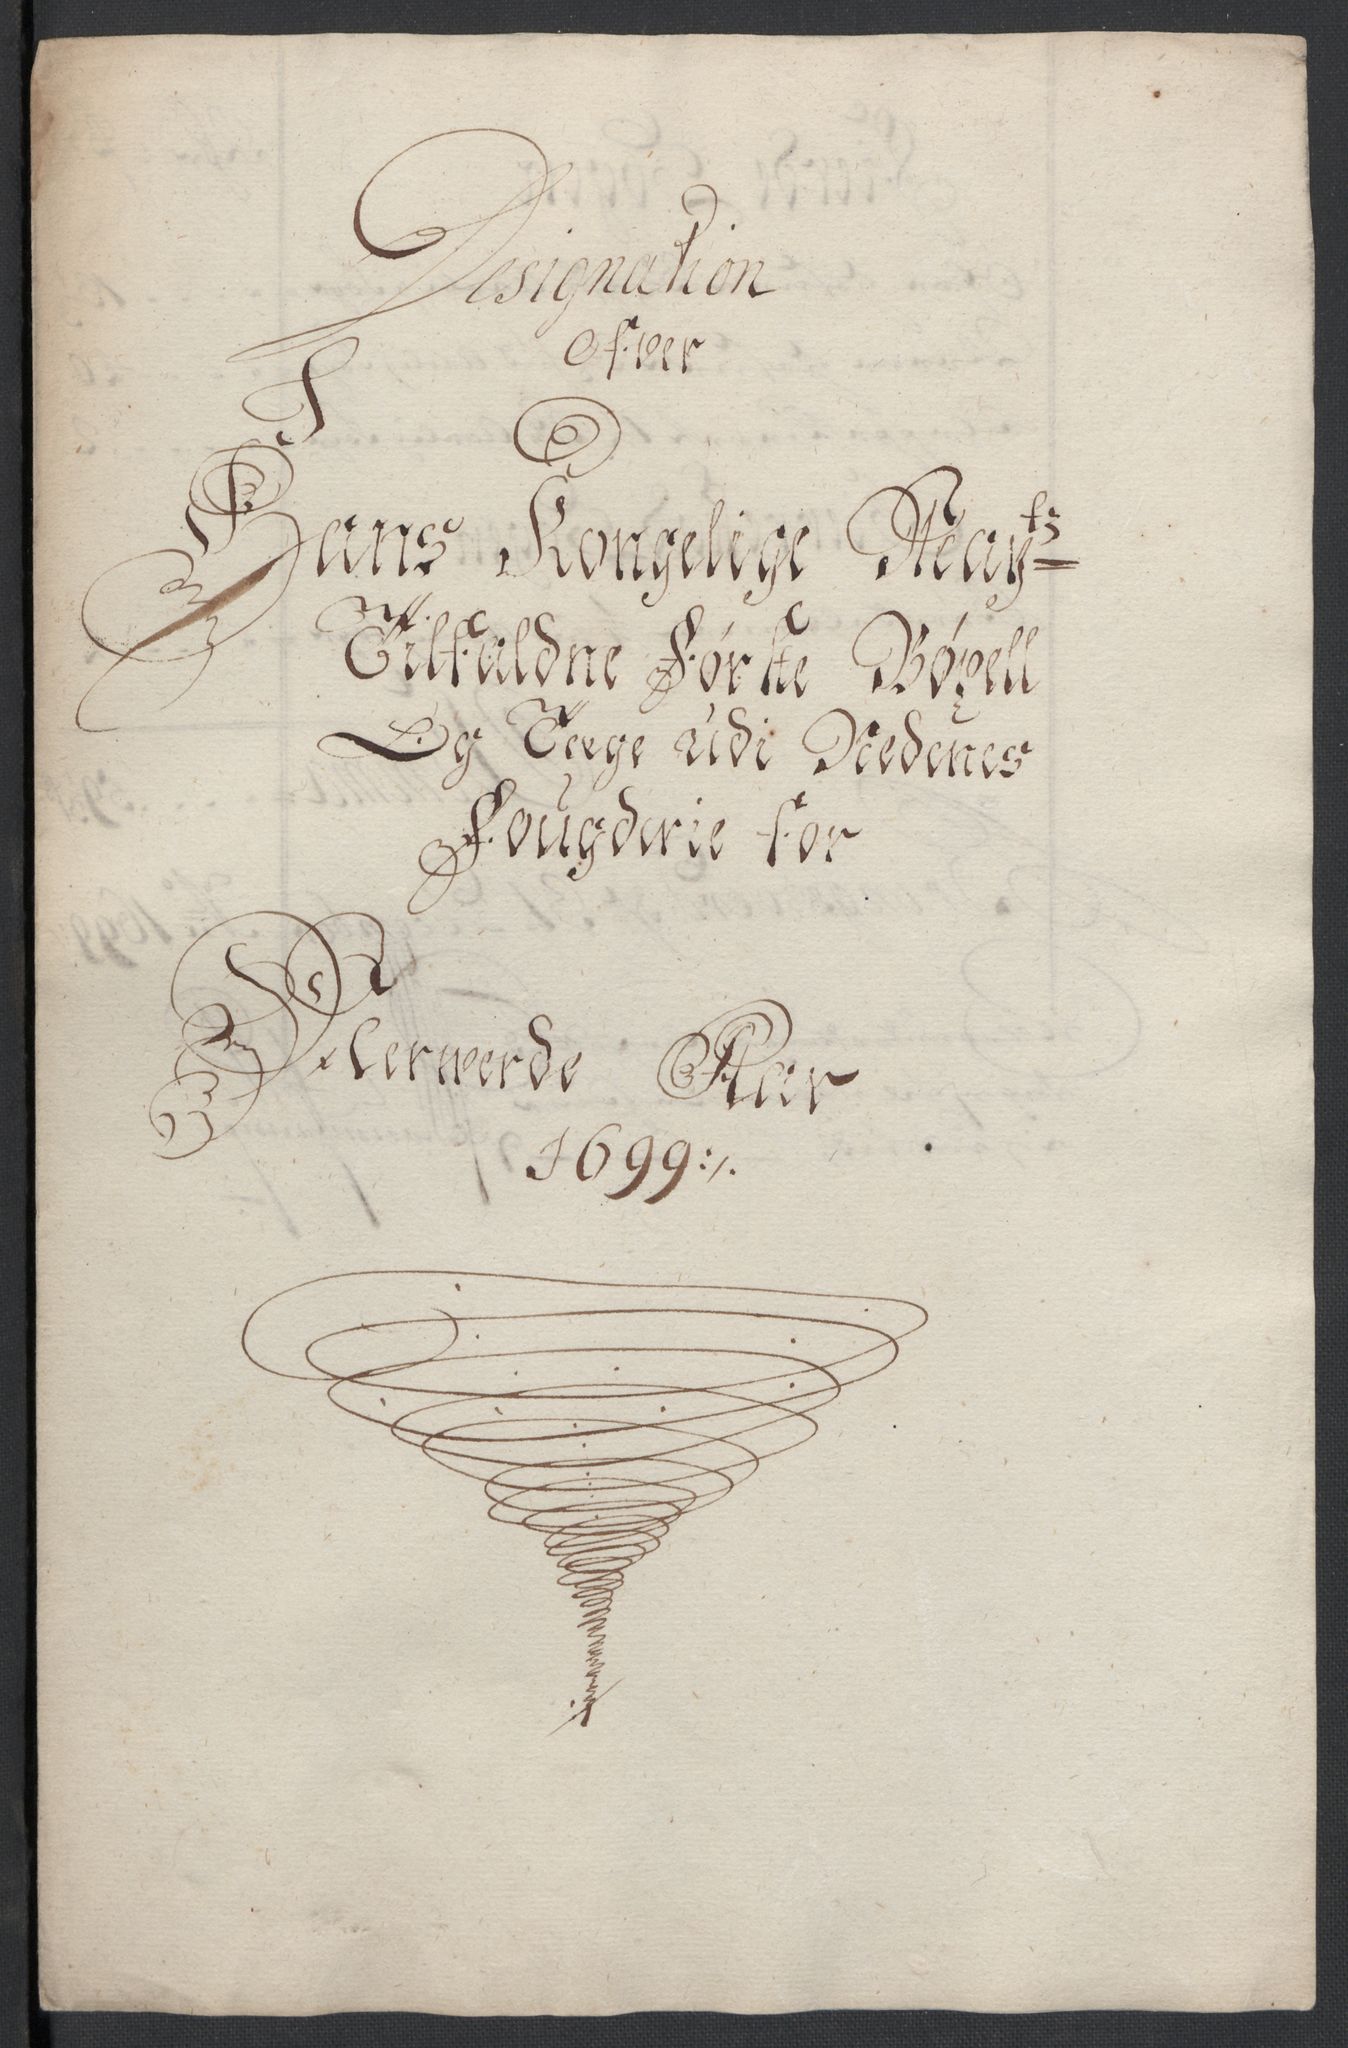 Designation
Ofver
Hans Kongelige Mayts
Tilfaldne Første Bøxell
Og Tæge udi Nedenes
Fougderie for
Nerwerde Aar
1699:/.